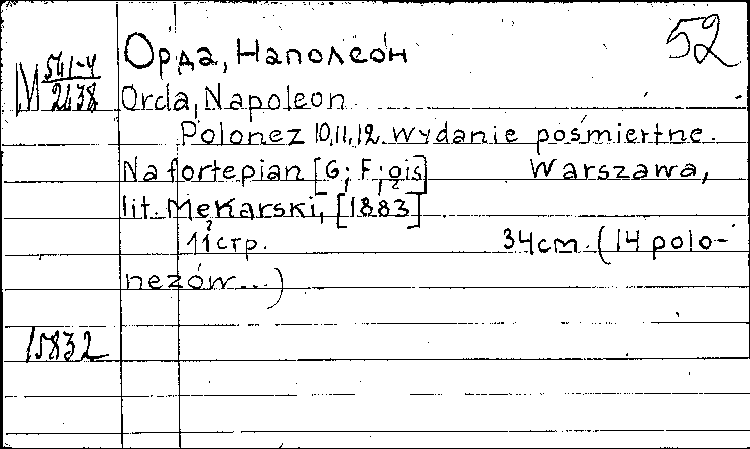 52
Орда, Наполеон
М 541-4/2438
Orda, Napoleon
Polonez 10, 11, 12. Wydanie pośmiertne.
Na fortepian [G; F; gis] Warszawa,
lit. Mękarski, [1883]
11 стр. 34 cm. (14 polo-
nezów...)
15832